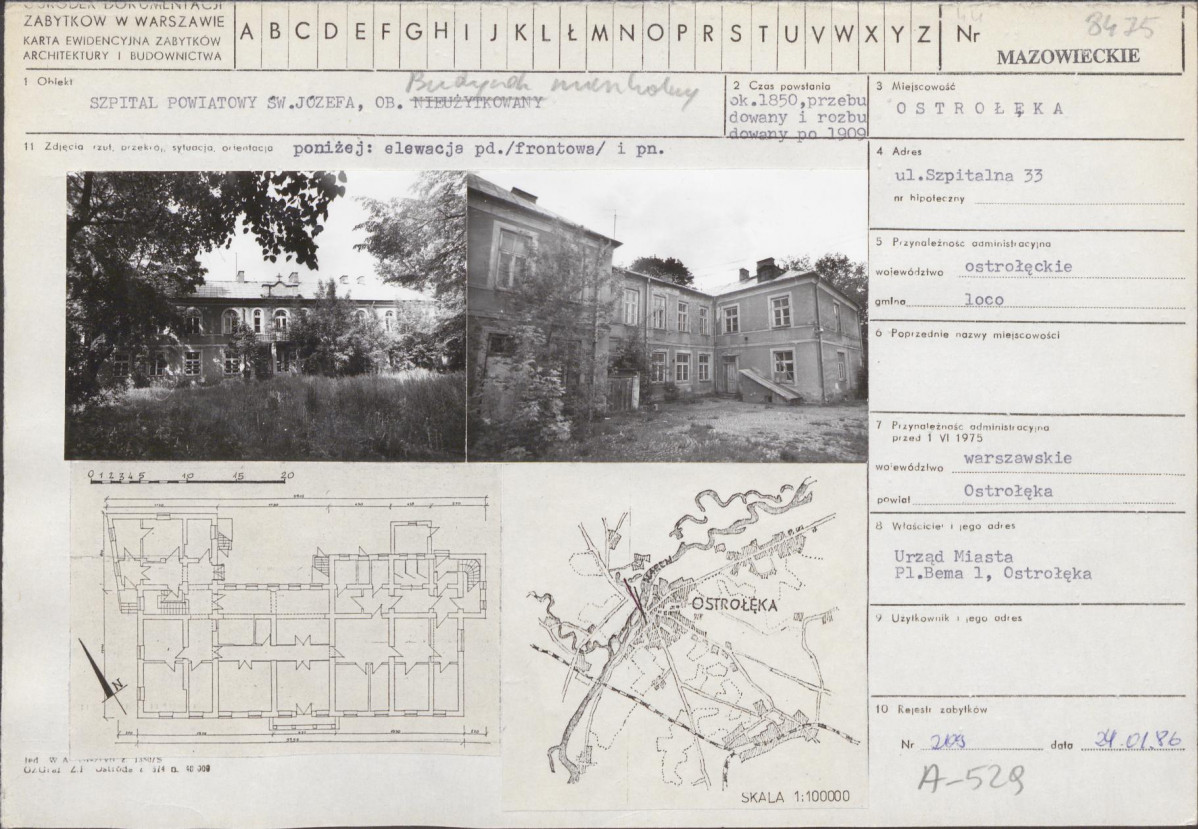 OŚRODEK DOKUMENTACJI
ZABYTKÓW W WARSZAWIE
KARTA EWIDENCYJNA ZABYTKÓW
ARCHITEKTURY I BUDOWNICTWA
A B C D E F G H I J K L Ł M N O P R S T U V W X Y Z
Nr
8475
MAZOWIECKIE
1 Obiekt
Budynek mieszkalny
SZPITAL POWIATOWY ŚW.JÓZEFA, OB. NIEUŻYTKOWANY
2 Czas powstania
ok.1850,przebu
dowany i rozbu
dowany po 1909
3 Miejscowość
OSTROŁĘKA
11 Zdjęcia rzut, przekrój, sytuacja, orientacja poniżej: elewacja pd./frontowa/ i pn.
4 Adres
ul.Szpitalna 33
nr hipoteczny
5 Przynależność administracyjna
województwo ostrołęckie
gmina loco
6 Poprzednie nazwy miejscowości
7 Przynależność administracyjna
przed 1 VI 1975
województwo warszawskie
powiat Ostrołęka
8 Właściciel i jego adres
Urząd Miasta
Pl.Bema 1, Ostrołęka
9 Użytkownik i jego adres
10 Rejestr zabytków
Nr 209 data 24.01.86
A-529
0 1 2 3 4 5 10 15 20
N
NAREW
OSTROŁĘKA
SKALA 1:100000